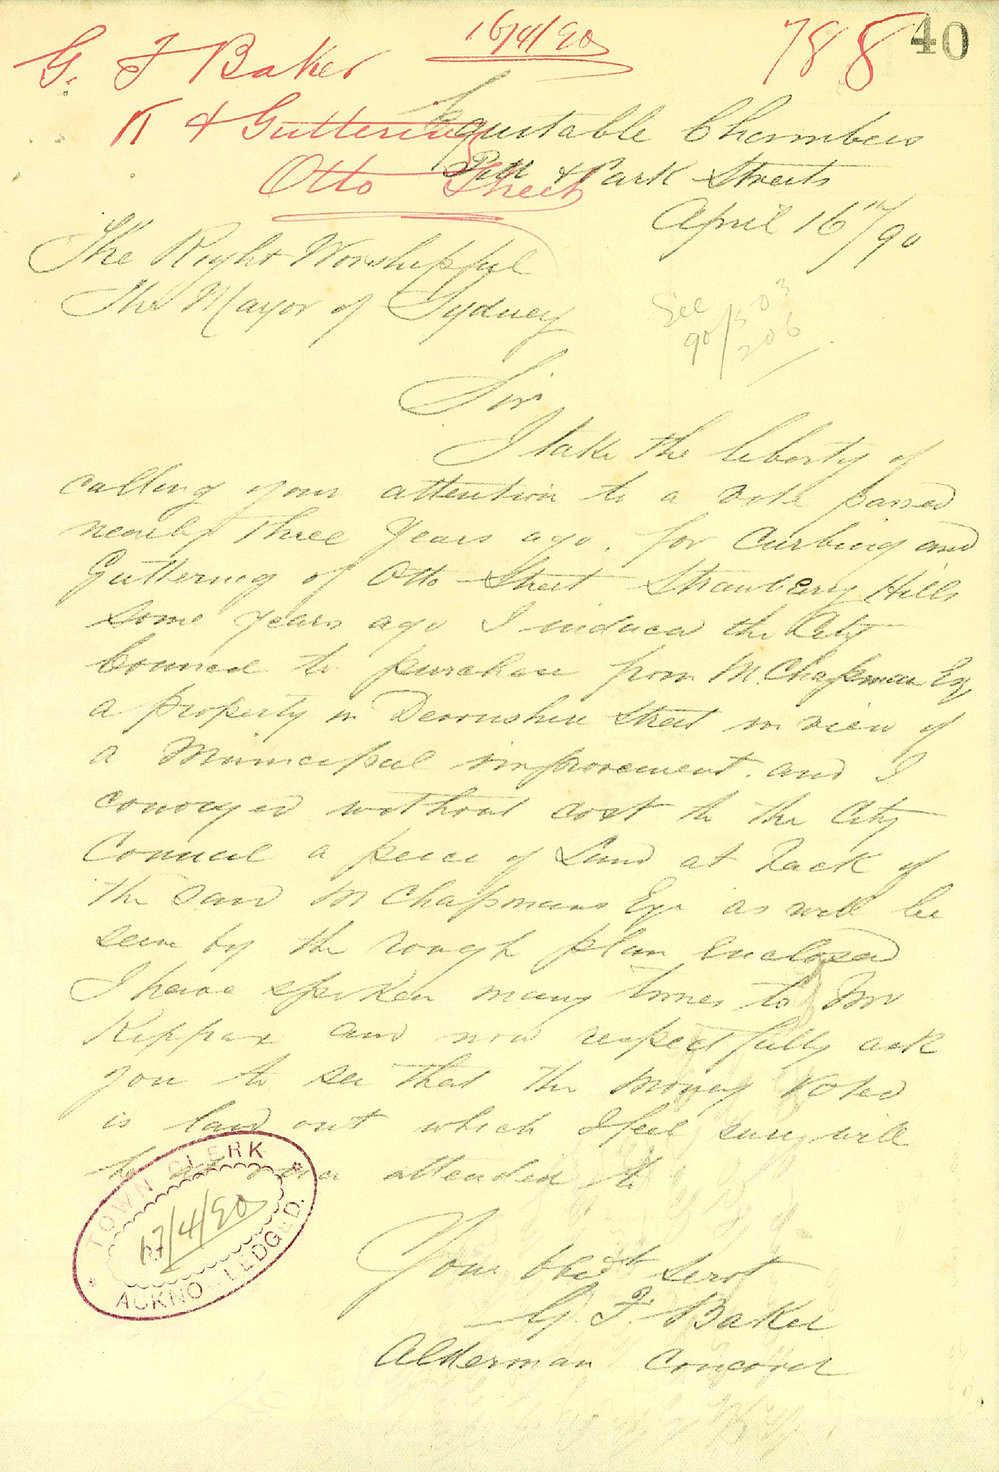 16/4/90
788
40
G. F Baker
K & Guttering
Otto Street
Equitable Chambers
Pitt & Park Streets
April 16th/90
The Right Worshipful
The Mayor of Sydney
See
90/503
206
Sir
I take the liberty of
calling your attention to a vote passed
nearly three years ago. for Curbing and
Guttering of Otto Street Strawbery Hills
some years ago I induced the City
Council to purchase from M. Chapman Esq
a property in Devonshire Street in view of
a Municipal improvement. and I
conveyed without cost to the City
Council a peice of Land at back of
the said M Chapmans Esqr as will be
seen by the rough plan enclosed
I have spoken many times to Mr
Kippax and now respectfully ask
you to see that the money voted
is laid out which I feel sure will
to attended to
Your obedt servt
G. F. Baker
Alderman Concord
TOWN CLERK
17/4/90
ACKNOWLEDGED.